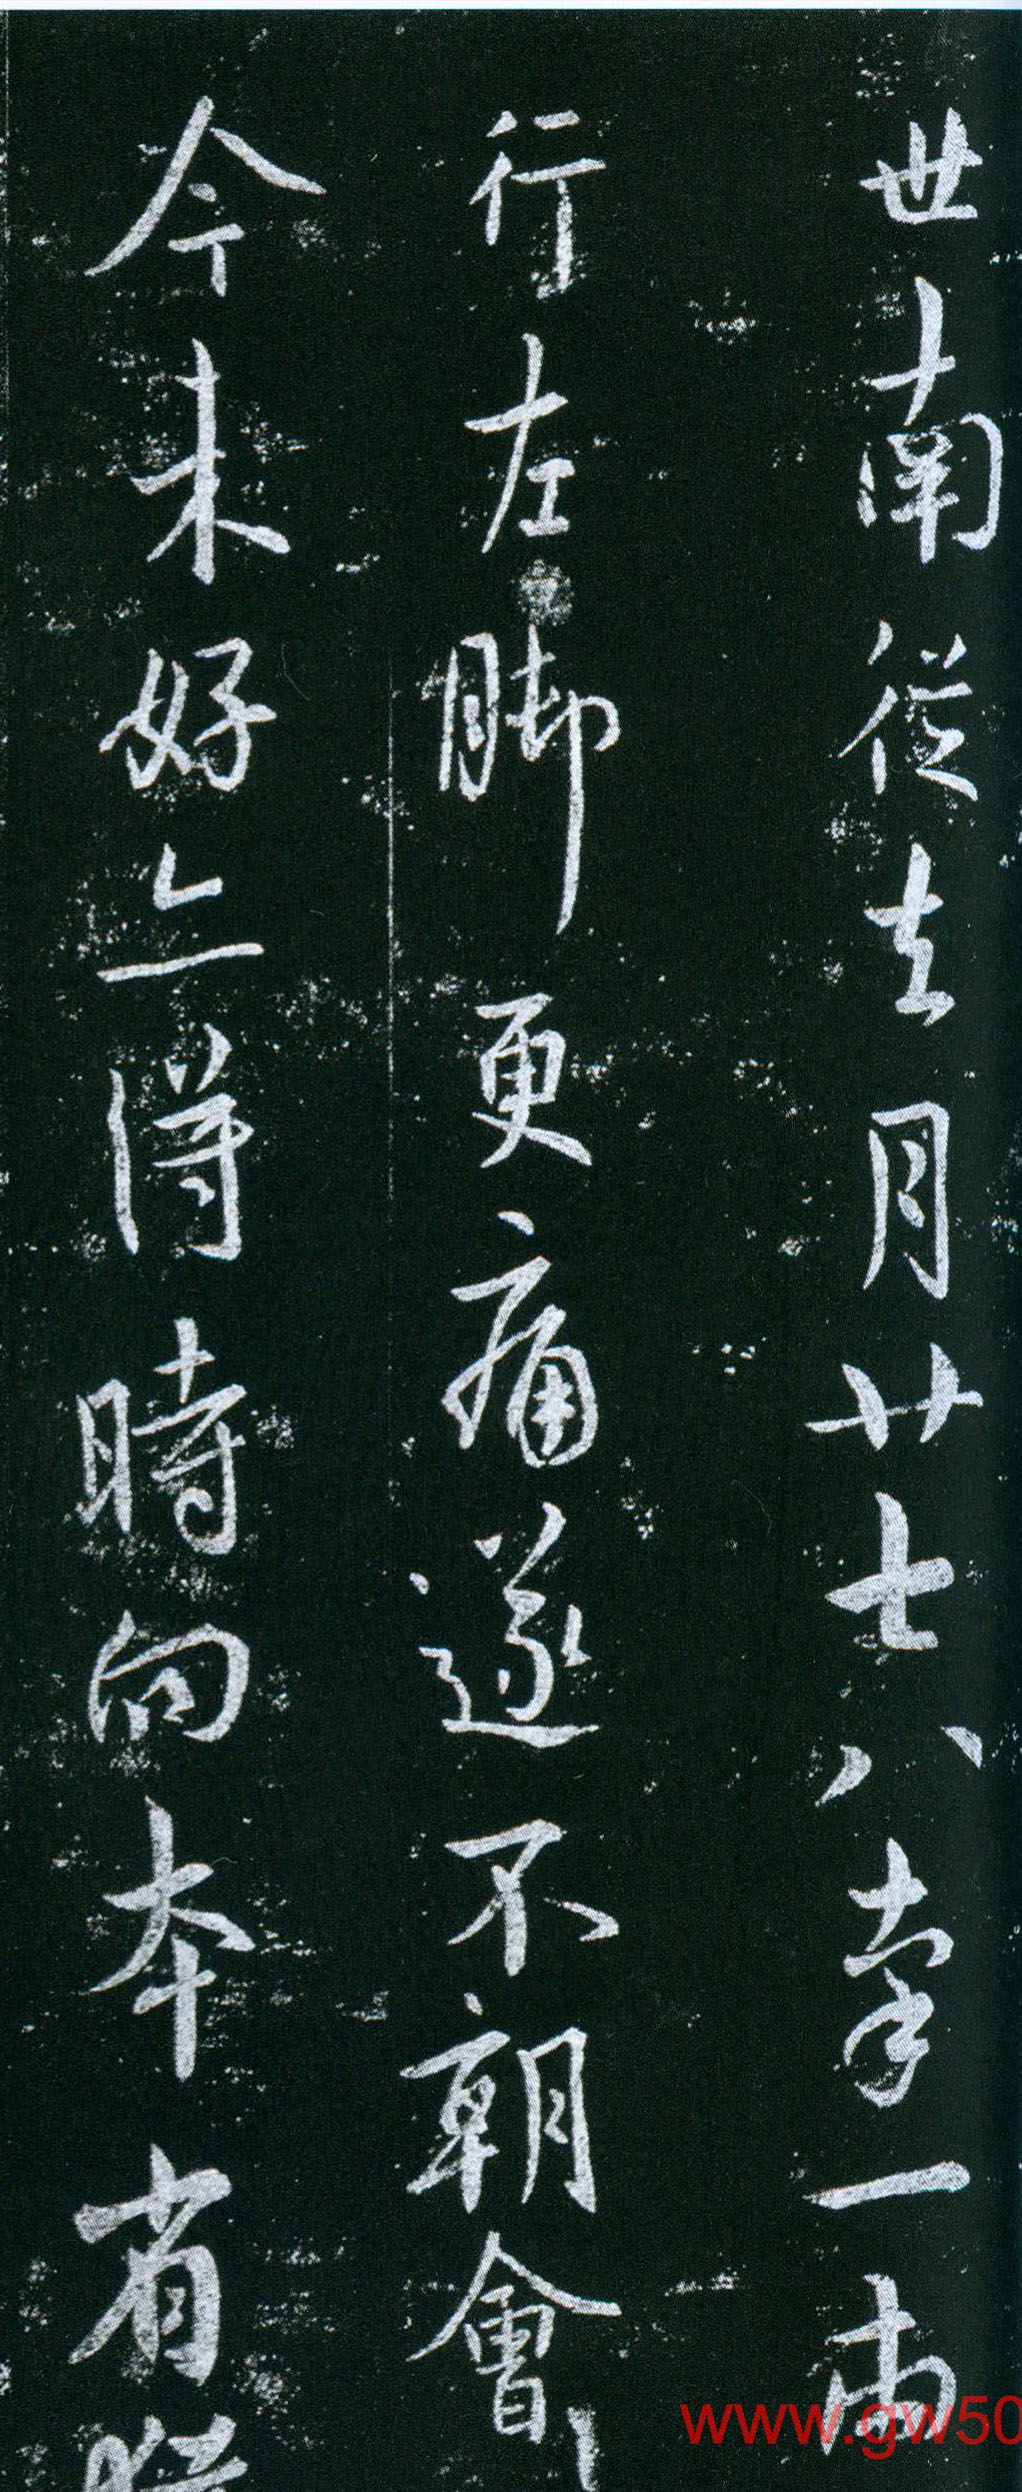 世南従去月廿七八率一両
行左脚更痛遂不朝會
今未好亦得時向本省
www.gw50